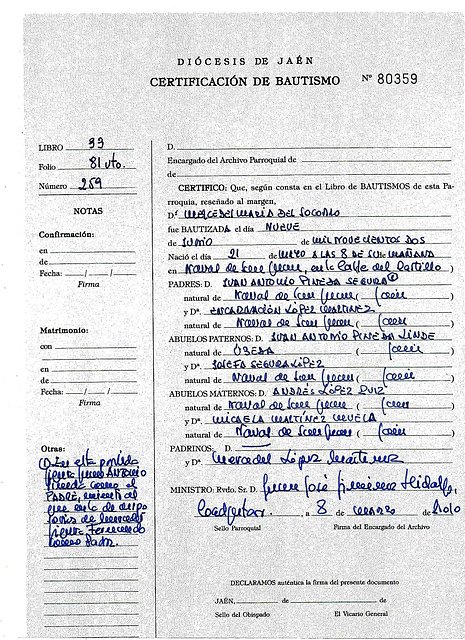 DIÓCESIS DE JAÉN
CERTIFICACIÓN DE BAUTISMO Nº 80359
LIBRO 33
Folio 81 vto.
Número 259
NOTAS
Confirmación:
en
de
Fecha: / /
Firma
Matrimonio:
con
en
de
Fecha: / /
Firma
Otras:
D.
Encargado del Archivo Parroquial de
de
CERTIFICO: Que, según consta en el Libro de BAUTISMOS de esta Pa-
rroquia, reseñado al margen,
Dª MERCEDES MARIA DEL SOCORRO
fue BAUTIZADA el día NUEVE
de JUNIO de MIL NOVECIENTOS DOS
Nació el día 21 de MAYO A LAS 8 DE SU MAÑANA
en Naval de San Juan, en la Calle del Castillo)
PADRES: D. JUAN ANTONIO PINEDA SEGURA
natural de Naval de San Juan (Jaén)
y Dª ENCARNACIÓN LÓPEZ MARTINEZ
natural de Naval de San Juan (Jaén)
ABUELOS PATERNOS: D. JUAN ANTONIO PINEDA LINDE
natural de ÚBEDA (Jaén)
y Dª JOSEFA SEGURA LÓPEZ
natural de Naval de San Juan (Jaén)
ABUELOS MATERNOS: D. ANDRÉS LÓPEZ RUIZ
natural de Naval de San Juan (Jaén)
y Dª MICAELA MARTINEZ
natural de Naval de San Juan (Jaén)
PADRINOS: D.
y Dª Mercedes López Martínez
MINISTRO: Rvdo. Sr. D. Juan José Jiménez Hidalgo,
Coadjutor. , a 8 de marzo de 2010
Sello Parroquial Firma del Encargado del Archivo
DECLARAMOS auténtica la firma del presente documento
JAÉN, de de
Sello del Obispado El Vicario General